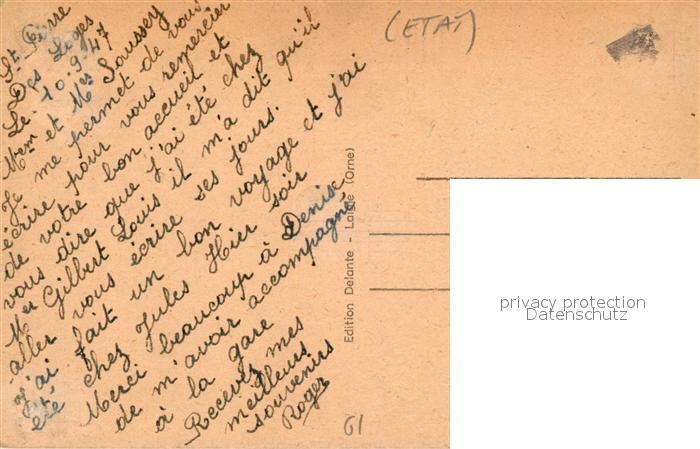 St Pierre
Des Loges
Le 10.9.47
Mem et Mer Saussey
Je me permet de vous
écrire pour vous remercier
de votre bon accueil et
vous dire que j'ai été chez
Mer Gilbert Louis il m'a dit qu'il
aller vous écrire ses jours.
J'ai fait un bon voyage et j'ai
été chez Jules Hier soir
Merci beaucoup à Denise
de m'avoir accompagné
à la gare
Recevez mes
meilleurs
souvenirs
Roger
(ETAT)
Edition Delante - Laigle (Orne)
61
privacy protection
Datenschutz